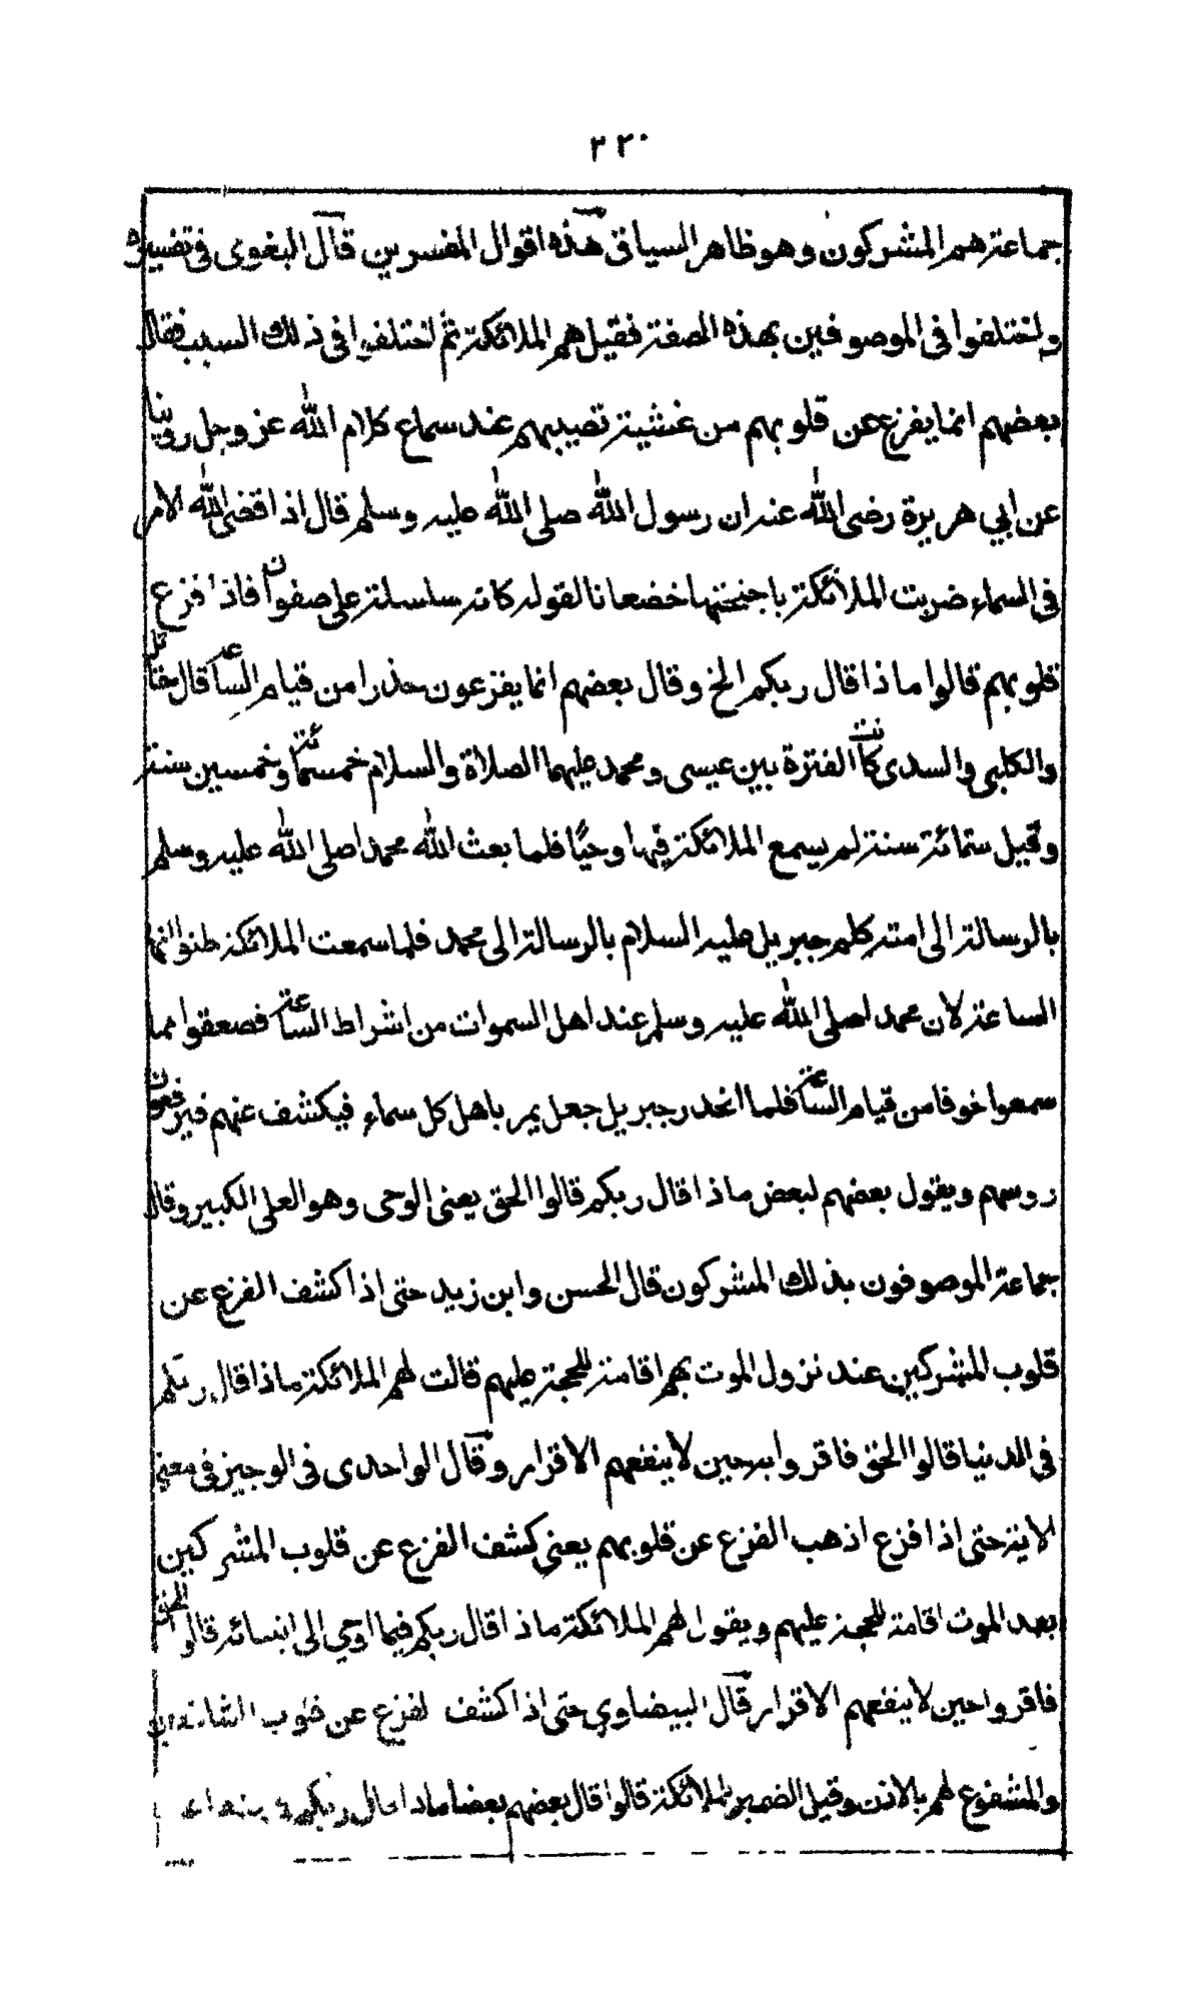 ٢٢٠
جماعة هم المشركون وهو ظاهر السياق هذه اقوال المفسرين قال البغوى فى تفسيره
واختلفوا فى الموصوفين بهذه الصفة فقيل هم الملائكة ثم اختلفوا فى ذلك السبب فقال
بعضهم انما يفزع عن قلوبهم من غشية تصيبهم عند سماع كلام الله عز وجل روينا
عن ابي هريرة رضى الله عنه ان رسول الله صلى الله عليه وسلم قال اذا قضى الله الامر
فى السماء ضربت الملائكة باجنحتها خضعانا لقوله كانه سلسلة على صفوان فاذا فزع
قلوبهم قالوا ماذا قال ربكم الخ وقال بعضهم انما يفزعون حذرا من قيام الساعة قال مقاتل
والكلبى والسدى كانت الفترة بين عيسى ومحمد عليهما الصلاة والسلام خمسمائة وخمسين سنة
وقيل ستمائة سنة لم يسمع الملائكة فيها وحيًا فلما بعث الله محمدا صلى الله عليه وسلم
بالرسالة الى امته كلم جبريل عليه السلام بالرسالة الى محمد فلما سمعت الملائكة ظنوا انها
الساعة لان محمدا صلى الله عليه وسلم عند اهل السموات من اشراط الساعة فصعقوا مما
سمعوا خوفا من قيام الساعة فلما انحدر جبريل جعل يمر باهل كل سماء فيكشف عنهم فيرفعون
روسهم ويقول بعضهم لبعض ماذا قال ربكم قالوا الحق يعنى الوحى وهو العلى الكبير وقال
جماعة الموصوفون بذلك المشركون قال الحسن وابن زيد حتى اذا كشف الفزع عن
قلوب المشركين عند نزول الموت بهم اقامة للحجة عليهم قالت لهم الملائكة ماذا قال ربكم
فى الدنيا قالوا الحق فاقروا به حين لا ينفعهم الاقرار وقال الواحدى فى الوجيز فى معنى
لاية حتى اذا فزع اذهب الفزع عن قلوبهم يعنى كشف الفزع عن قلوب المشركين
بعد الموت اقامة للحجة عليهم ويقول لهم الملائكة ماذا قال ربكم فيما اوحي الى انبيائه قالوا الحق
فاقروا حين لا ينفعهم الاقرار قال البيضاوي حتى اذا كشف لفزع عن قلوب الشافعين
والمشفوع لهم بالاذن وقيل الضمير للملائكة قالوا قال بعضهم بعضا ماذا قال ربكم